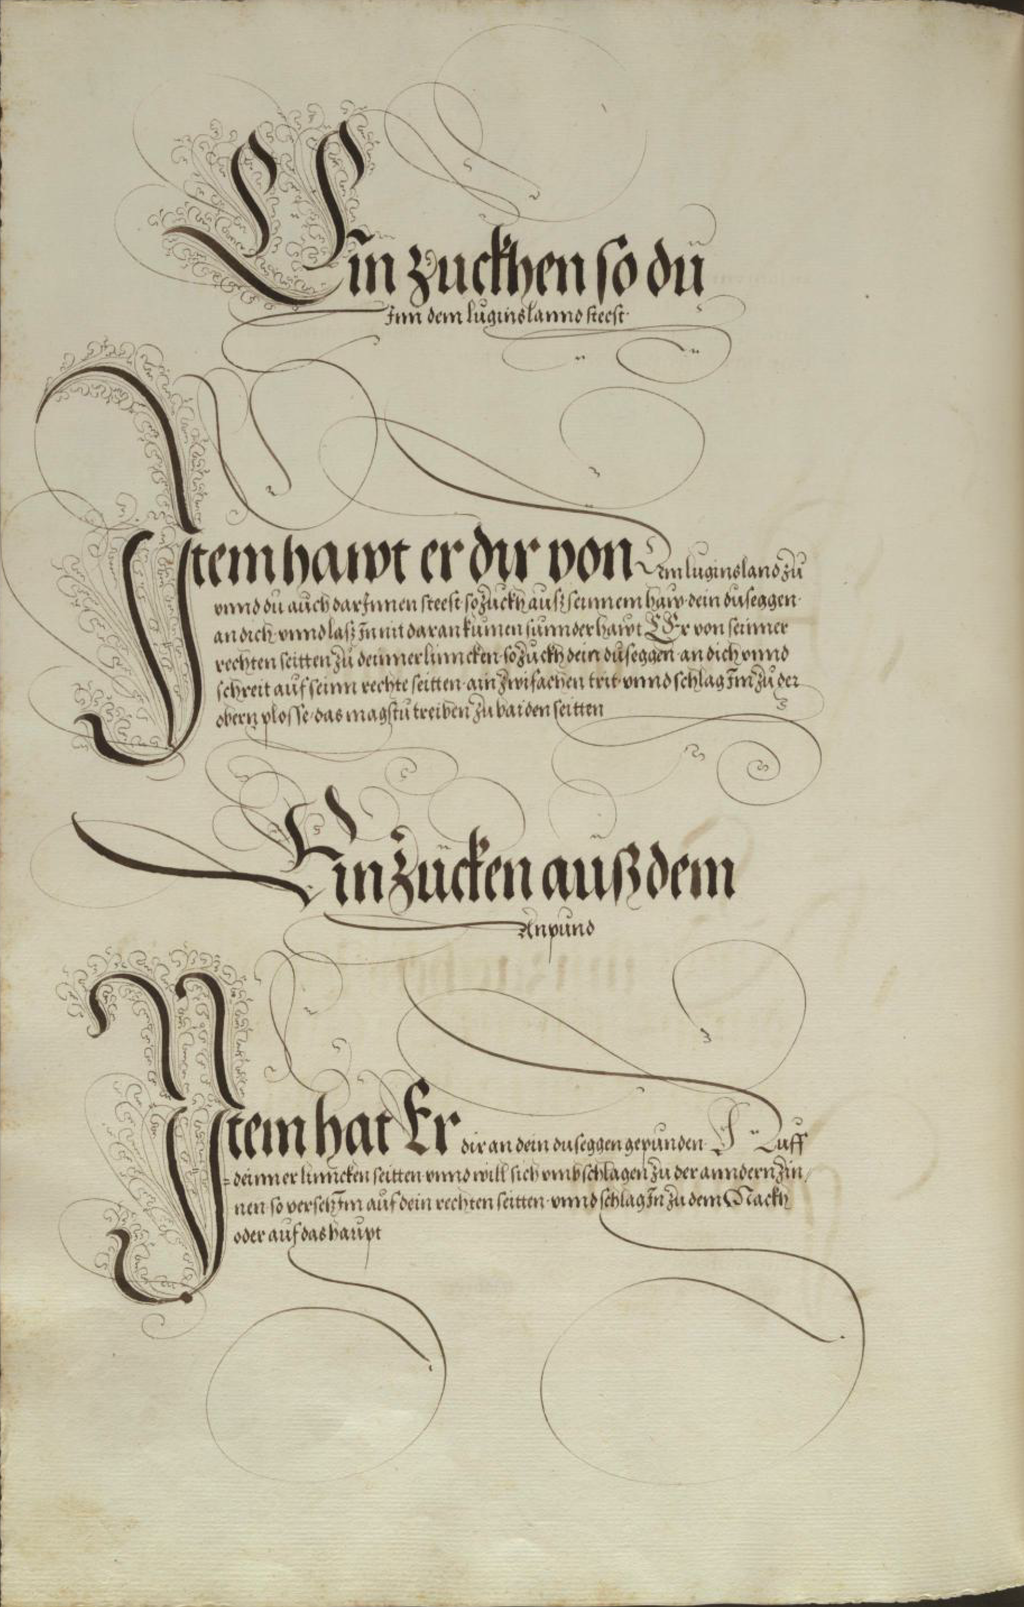 Ein zuckhen so dü
Inn dem luginslannd steest
Item hawt er dir von Dem luginsland zu
vnnd du auch darInnen steest so zuckh auß seinnem haw dein duseggen
an dich vnnd laß Im nit daran kumen sunnder hawt Er von seinner
rechten seitten zu deinner linncken so zuckh dein duseggen an dich vnnd
schreit auf seinn rechte seitten ain zwifachen trit vnnd schlag Im zu der
obern plosse das magstu treiben zu baiden seitten
Ein zücken außdem
Anpund
Item hat Er dir an dein duseggen gepunden Auff
deinner linncken seitten vnnd will sich vmbschlagen zu der anndern zin
nen so versetz Im auf dein rechten seitten vnnd schlag In zu dem Nackh
oder auf das haupt